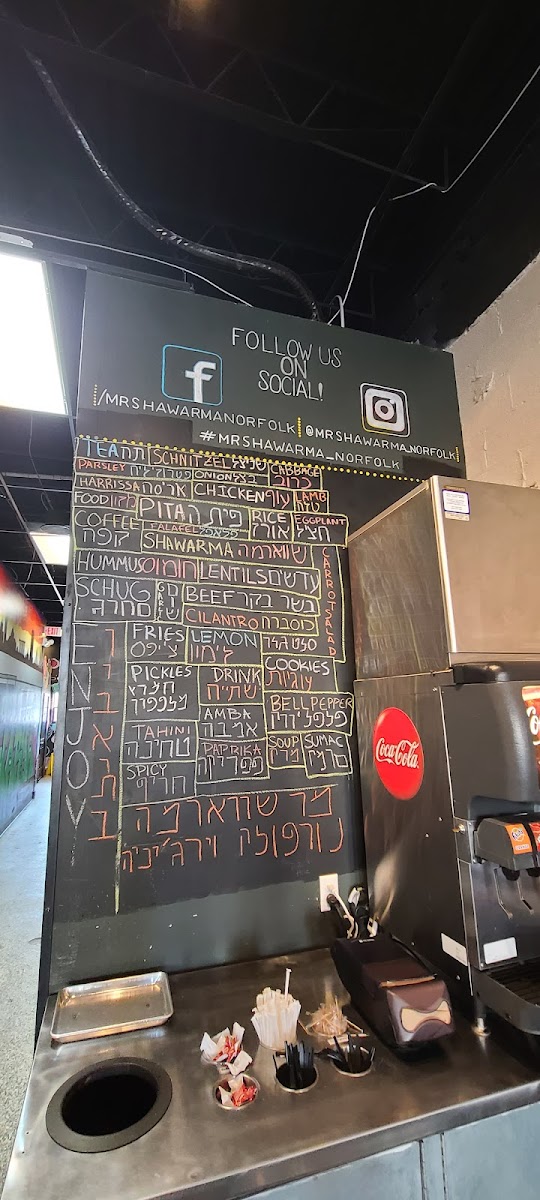 FOLLOW US
ON
SOCIAL!
f
/MRSHAWARMANORFOLK
@MRSHAWARMA_NORFOLK
#MRSHAWARMA_NORFOLK
TEA תה
SCHNITZEL שניצל
CABBAGE כרוב
PARSLEY
ONION בצל
HARRISSA אריסה
CHICKEN עוף
LAMB טלה
FOOD מזון
PITA פיתה
RICE אורז
EGGPLANT חציל
COFFEE קופה
FALAFEL פלאפל
SHAWARMA שווארמה
CARROT SALAD
HUMMUS חומוס
LENTILS עדשים
SCHUG סחוג
BEEF בשר בקר
CILANTRO כוסברה
FRIES צ'יפס
LEMON לימון
COOKIES עוגיות
PICKLES
DRINK שתייה
BELL PEPPER
AMBA אמבה
TAHINI טחינה
PAPRIKA פפריקה
SOUP מרק
SUMAC סומק
SPICY חריף
ENJOY
מר שווארמה
נורפולק וירג'יניה
EXIT
Coca-Cola